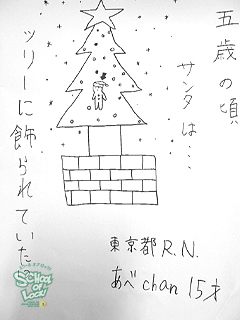 五歳の頃
サンタは…
ツリーに飾られていた
東京都 R.N.
あべchan 15才
SCHOOL OF LOCK!